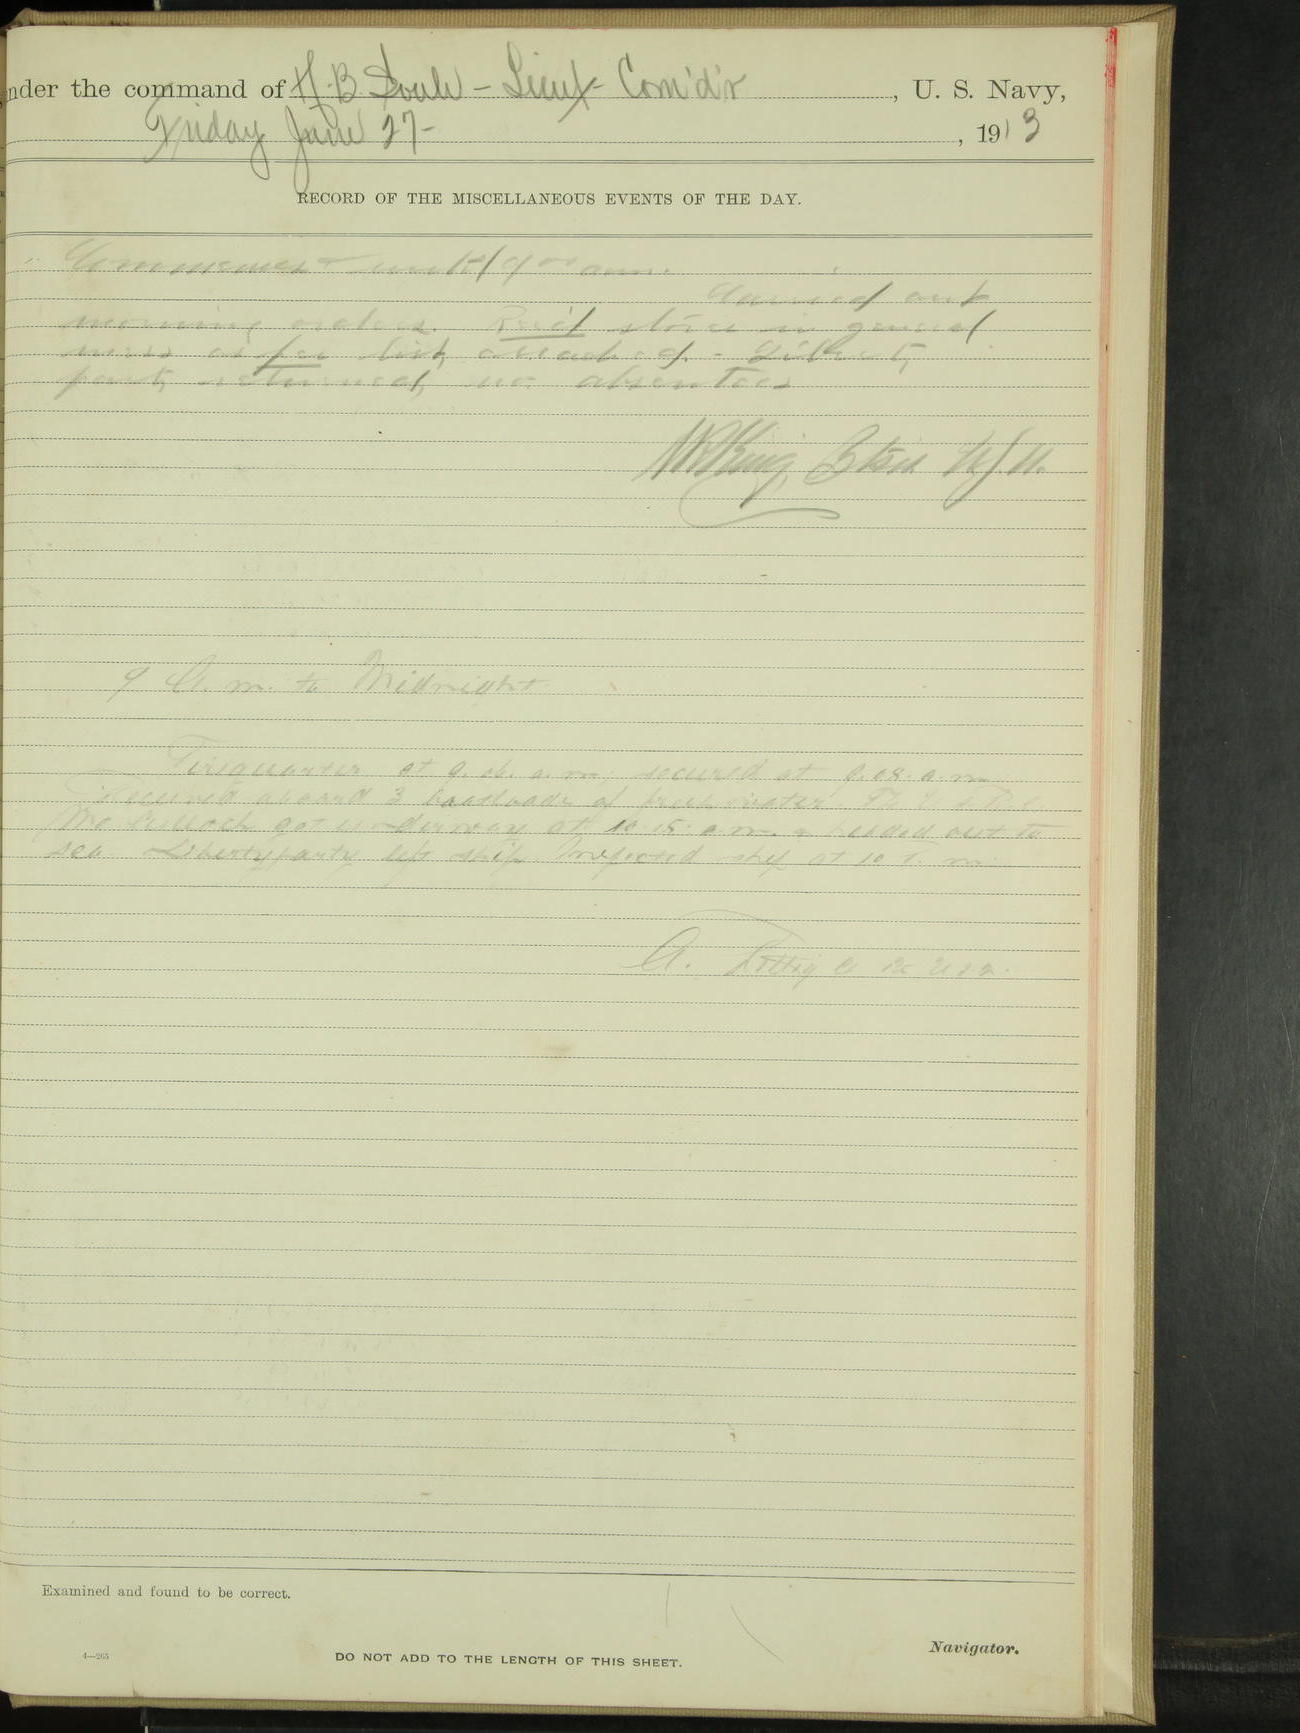 nder the command of H. B. Soule - Lieut - Com'd'r, U. S. Navy,
Friday June 27 -, 1913
RECORD OF THE MISCELLANEOUS EVENTS OF THE DAY.
Commences until 9 00 a.m.
Carried out
morning orders. Rec'd stores in general
mess as per list attached. - Liberty
party returned, no absentees
King, Btsn U.S.N.
9 A. m. to Midnight
Firequarters at 9. a.m. secured at 9.08. a.m.
Received aboard 3 boatloads of fresh water. The U.S.R.C.
McCulloch got underway at 10.15. a.m. & headed out to
sea. Liberty party left ship. Inspected ship at 10 P. m.
A.
Examined and found to be correct.
Navigator.
4—265
DO NOT ADD TO THE LENGTH OF THIS SHEET.